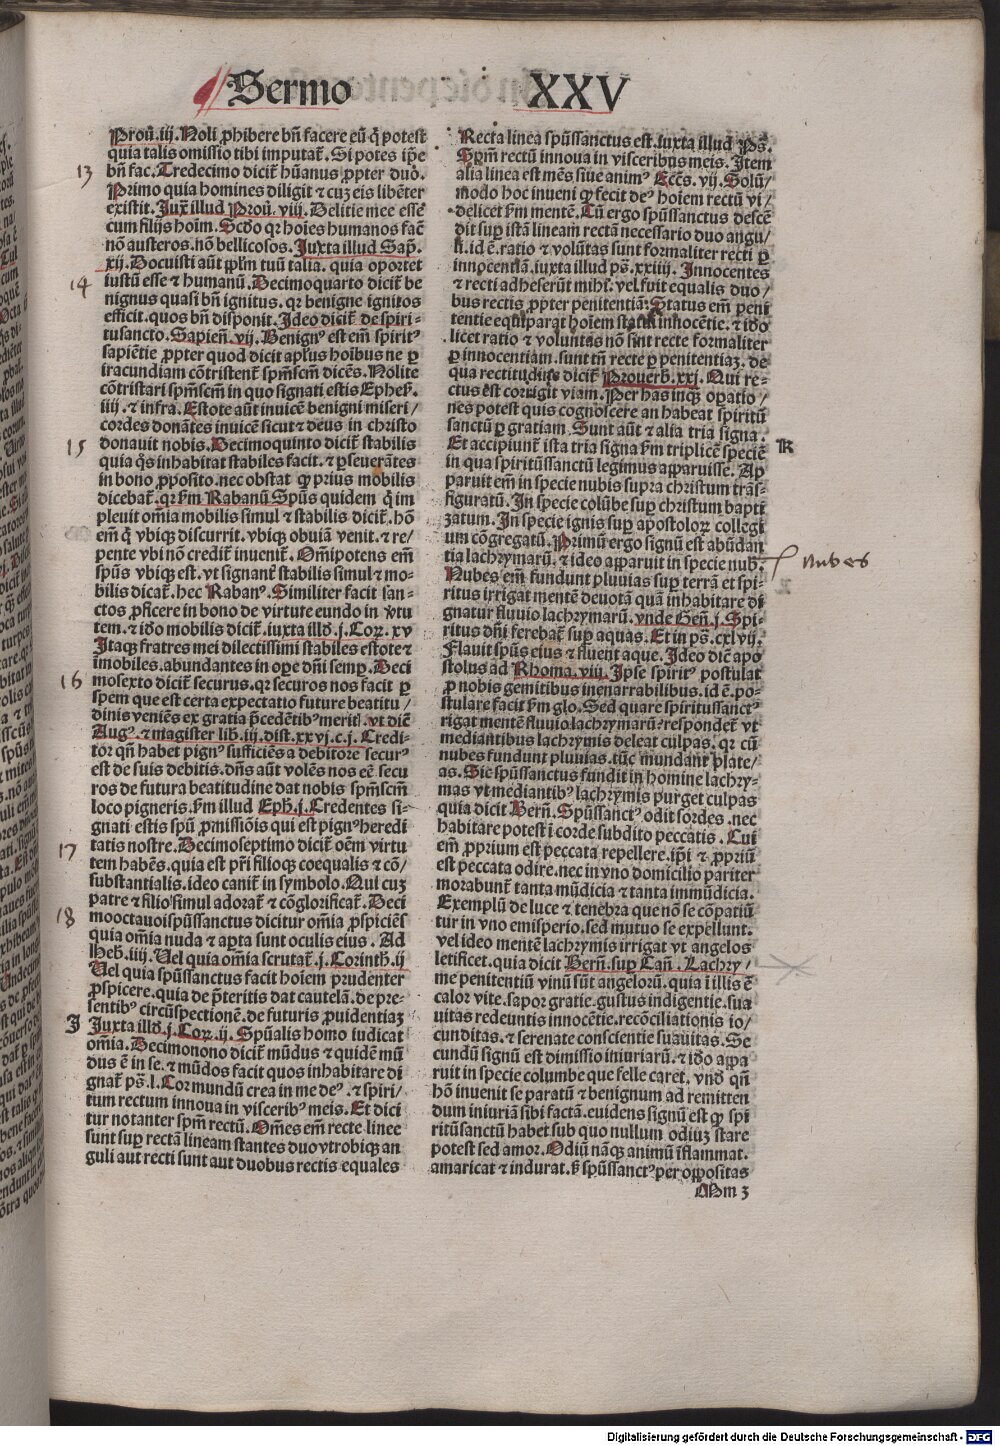 Sermo XXV
Prou̅. iij. Noli ꝓhibere bn̅ facere eu̅ q̇ potest
quia talis omissio tibi imputat̃. Si potes ip̅e
13
bn̅ fac. Tredecimo dicit̃ hu̅anus ꝓpter duo.
Primo quia homines diligit ⁊ cuꝫ eis libe̅ter
existit. Iuxͭ illud Prou̅. viij. Delitie mee esse
cum filijs hoı̅m. Scd̅o qꝛ hoı̅es humanos fac̅
no̅ austeros. no̅ bellicosos. Iuxta illud Sap̅.
xij. Docuisti au̅t ppl̅m tuu̅ talia. quia oportet
14
iustu̅ esse ⁊ humanu̅. Decimoquarto dicit̃ be
nignus quasi bn̅ ignitus. qꝛ benigne ignitos
efficit. quos bn̅ disponit. Ideo dicit̃ de spiri-
tusancto. Sapien̅. vij. Benignꝰ est em̅ spiritꝰ
sapie̅tie ꝓpter quod dicit apl̅us hoı̅bus ne ꝑ
iracundiam co̅tristent̃ spm̅scm̅ dice̅s. Nolite
co̅tristari spm̅scm̅ in quo signati estis Ephes̅.
iiij. ⁊ infra. Estote au̅t inuice̅ benigni miseri/
cordes dona̅tes inuice̅ sicut ⁊ deus in christo
15
donauit nobis. Decimoquinto dicit̃ stabilis
quia q̇s inhabitat stabiles facit. ⁊ ꝑseuera̅tes
in bono ꝓposito. nec obstat ꝙ prius mobilis
dicebat̃. qꝛ ẜm Rabanu̅ Spu̅s quidem q̇ im
pleuit om̅ia mobilis simul ⁊ stabilis dicit̃. ho̅
em̅ q̇ vbiqꝫ discurrit. vbiqꝫ obuia̅ venit. ⁊ re/
pente vbi no̅ credit̃ inuenit̃. Om̅ipotens em̅
spu̅s vbiqꝫ est. vt signant̃ stabilis simul ⁊ mo-
bilis dicat̃. hec Rabanꝰ. Similiter facit san-
ctos ꝓficere in bono de virtute eundo in v̓tu
tem. ⁊ ido̅ mobilis dicit̃. iuxta illd̅. j. Coꝝ. xv
Itaqꝫ fratres mei dilectissimi stabiles estote ⁊
im̅obiles. abundantes in oꝑe dn̅i semꝑ. Deci
16
mosexto dicit̃ securus. qꝛ securos nos facit ꝑ
spem que est certa expectatio future beatitu/
dinis venie̅s ex gratia p̅cede̅tibꝰ merit̃. vt dic̅
Augꝰ. ⁊ magister lib̅. iij. dist̃. xxvj. c. j. Credi-
tor qn̅ habet pignꝰ sufficie̅s a debitore securꝰ
est de suis debitis. dn̅s au̅t vole̅s nos ee̅ secu
ros de futura beatitudine dat nobis spm̅scm̅
loco pigneris. ẜm illud Eph̅. j. Credentes si-
gnati estis spu̅ ꝓmissio̅is qui est pignꝰ heredi
17
tatis nostre. Decimoseptimo dicit̃ oe̅m virtu
tem habe̅s. quia est pr̅i filioqꝫ coequalis ⁊ co̅/
substantialis. ideo canit̃ in symbolo. Qui cuꝫ
patre ⁊ filio simul adorat̃ ⁊ co̅glorificat̃. Deci
18
mooctauo spu̅ssanctus dicitur om̅ia ꝓspicie̅s
quia om̅ia nuda ⁊ aꝑta sunt oculis eius. Ad
Heb̅. iiij. Uel quia om̅ia scrutat̃. j. Corinth̅. ij
Uel quia spu̅ssanctus facit hoı̅em prudenter
ꝓspicere. quia de p̅teritis dat cautela̅. de pre-
sentibꝰ circu̅spectione̅. de futuris ꝓuidentiaꝫ
J
Iuxta illd̅. j. Coꝝ. ij. Spu̅alis homo iudicat
om̅ia. Decimonono dicit̃ mu̅dus ⁊ quide̅ mu̅
dus e̅ in se. ⁊ mu̅dos facit quos inhabitare di
gnat̃ ps̅. l. Cor mundu̅ crea in me deꝰ. ⁊ spiri/
tum rectum innoua in visceribꝰ meis. Et dici
tur notanter spm̅ rectu̅. Om̅es em̅ recte linee
sunt suꝑ recta̅ lineam stantes duo vtrobiqꝫ an
guli aut recti sunt aut duobus rectis equales
Recta linea spu̅ssanctus est. iuxta illud Ps̅.
Spm̅ rectu̅ innoua in visceribus meis. Item
alia linea est me̅s siue animꝰ Eccs̅. vij. Solu̅/
modo hoc inueni ꝙ fecit deꝰ hoı̅em rectu̅ vi/
delicet ẜm mente̅. Cu̅ ergo spu̅ssanctus desce̅
dit suꝑ ista̅ lineam recta̅ necessario duo angu/
li. id e̅. ratio ⁊ volu̅tas sunt formaliter recti ꝑ
innocentia̅. iuxta illud ps̅. xxiiij. Innocentes
⁊ recti adheseru̅t mihi. vel fuit equalis duo/
bus rectis ꝓpter penitentia̅. Status em̅ peni
tentie equiparat hoı̅em statui innoce̅tie. ⁊ ido̅
licet ratio ⁊ voluntas no̅ sint recte formaliter
ꝑ innocentiam. sunt tn̅ recte ꝑ penitentiaꝫ. de
qua rectitudine dicit̃ Prouerb̅. xxj. Qui re-
ctus est corrigit viam. Per has inqꝫ oꝑatio/
nes potest quis cognoscere an habeat spiritu̅
sanctu̅ ꝑ gratiam. Sunt au̅t ⁊ alia tria signa.
K
Et accipiunt̃ ista tria signa ẜm triplice̅ specie̅
in qua spiritu̅ssanctu̅ legimus aꝑparuisse. Ap
paruit em̅ in specie nubis supra christum tra̅s-
figuratu̅. In specie colu̅be suꝑ christum bapti
zatum. In specie ignis suꝑ apostoloꝝ collegi
um co̅gregatu̅. Primu̅ ergo signu̅ est abu̅dan
tia lachrymaru̅. ⁊ ideo apparuit in specie nub̅.
nubes
Nubes em̅ fundunt pluuias suꝑ terra̅ et spi-
ritus irrigat mente̅ deuota̅ qua̅ inhabitare di
gnatur fluuio lachrymaru̅. vnde Gen̅. j. Spi-
ritus dn̅i ferebat̃ suꝑ aquas. Et in ps̅. cxlvij.
Flauit spu̅s eius ⁊ fluent aque. Ideo dic̅ apo
stolus ad Rhoma. viij. Ipse spiritꝰ postulat
ꝓ nobis gemitibus inenarrabilibus. id e̅. po-
stulare facit ẜm glo. Sed quare spiritussanctꝰ
rigat mente̅ fluuio lachrymaru̅? respondet̃ vt
mediantibus lachrymis deleat culpas. qꝛ cu̅
nubes fundunt pluuias. tu̅c mundant̃ plate/
as. Sic spu̅ssanctus fundit in homine lachry-
mas vt mediantibꝰ lachrymis purget culpas
quia dicit Bern̅. Spu̅ssanctꝰ odit sordes. nec
habitare potest i̅ corde subdito peccatis. Cui
em̅ ꝓprium est peccata repellere. ip̅i ⁊ ꝓpriu̅
est peccata odire. nec in vno domicilio pariter
morabunt̃ tanta mu̅dicia ⁊ tanta immu̅dicia.
Exemplu̅ de luce ⁊ tenebra que no̅ se co̅patiu̅
tur in vno emisperio. sed mutuo se expellunt.
vel ideo mente̅ lachrymis irrigat vt angelos
letificet. quia dicit Bern̅. suꝑ Can̅. Lachry/
me penitentiu̅ vinu̅ su̅t angeloru̅. quia i̅ illis e̅
calor vite. sapor gratie. gustus indigentie. sua
uitas redeuntis innoce̅tie. reco̅ciliationis io/
cunditas. ⁊ serenate conscientie suauitas. Se
cundu̅ signu̅ est dimissio iniuriaru̅. ⁊ ido̅ appa
ruit in specie columbe que felle caret. vnd̅ qn̅
ho̅ inuenit se paratu̅ ⁊ benignum ad remitten
dum iniuria̅ sibi facta̅. euidens signu̅ est ꝙ spi
ritu̅sanctu̅ habet sub quo nullum odiuꝫ stare
potest sed amor. Odiu̅ na̅qꝫ animu̅ i̅flammat.
amaricat ⁊ indurat. ß spu̅ssanctꝰ per oppositas
Mm 3
Digitalisierung gefördert durch die Deutsche Forschungsgemeinschaft - DFG